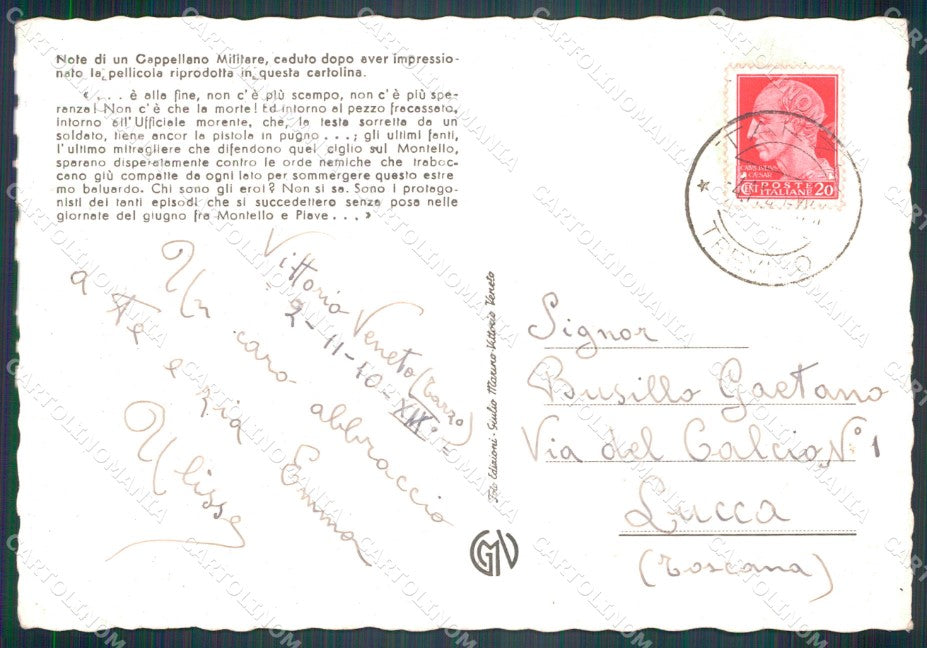 Note di un Cappellano Militare, caduto dopo aver impressio-
nato la pellicola riprodotta in questa cartolina.
«... è alla fine, non c'è più scampo, non c'è più spe-
ranza! Non c'è che la morte! Ed intorno al pezzo fracassato,
intorno all'Ufficiale morente, che, la testa sorretta da un
soldato, tiene ancor la pistola in pugno...; gli ultimi fanti,
l'ultimo mitragliere che difendono quel ciglio sul Montello,
sparano disperatamente contro le orde nemiche che traboc-
cano giù compatte da ogni lato per sommergere questo estre
mo baluardo. Chi sono gli eroi? Non si sa. Sono i protago-
nisti dei tanti episodi che si succedettero senza posa nelle
giornate del giugno fra Montello e Piave...»
Vittorio Veneto (Tarzo)
2-11-40-XIX°=
Un caro abbraccio
a Te e zia Emma
Ulisse
Foto Edizioni - Giulio Marino - Vittorio Veneto
GMV
POSTE
ITALIANE
CENT
20
CAESAR
TREVISO
Signor
Busillo Gaetano
Via del Calcio, N° 1
Lucca
(Toscana)
CARTOLINOMANIA